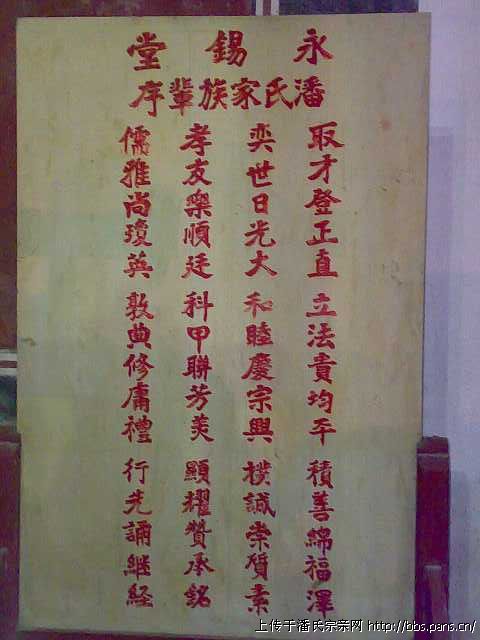 永錫堂
潘氏家族輩序
取才登正直 立法貴均平 積善綿福澤
奕世日光大 和睦慶宗興 樸誠崇質素
孝友樂順廷 科甲聯芳美 顯耀贊承銘
儒雅尚瓊英 敦典修庸禮 行先誦继経
上传于潘氏宗亲网 http://bbs.pans.cn/